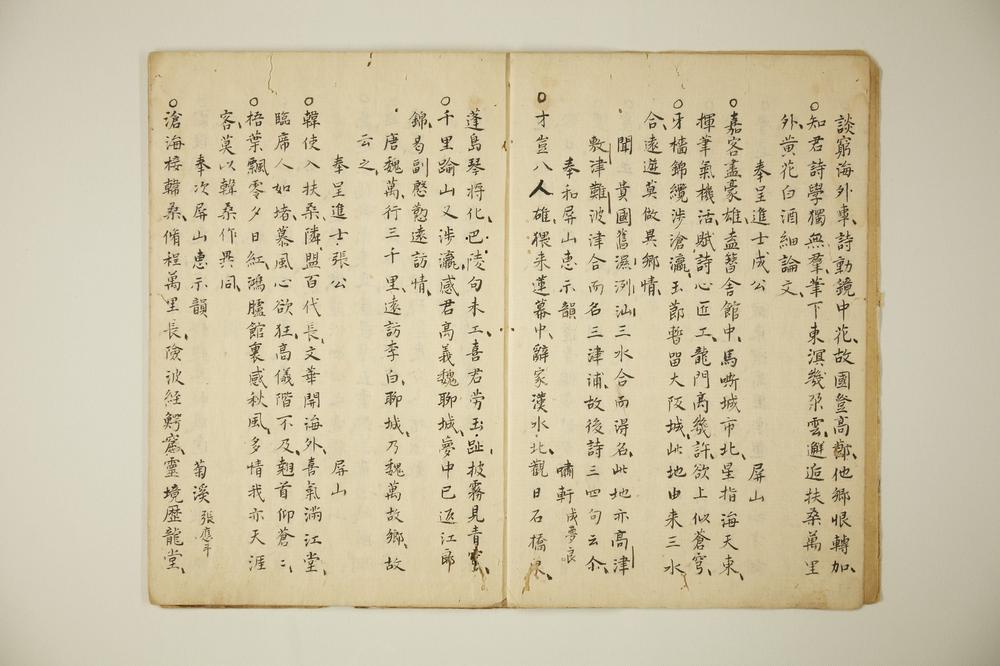 談窮海外車詩動鏡中花故國登高鄰他鄉恨轉加
○知君詩學獨無羣筆下東溟幾朶雲邂逅扶桑萬里
外黃花白酒細論文
奉呈進士成公 屏山
○嘉客盡豪雄盍簪舍館中馬嘶城市北星指海天東
揮筆氣機活賦詩心匠工龍門高幾許欲上似蒼穹
○牙檣錦纜涉滄瀛玉節暫留大阪城此地由來三水
合遠遊莫做異鄉情
聞貴國舊濕洌汕三水合而得名此地亦高津
敷津難波津合而名三津浦故後詩三四句云尒
奉和屏山惠示韻 嘯軒成夢良
○才豈八人雄猥來蓮幕中辭家漢水北觀日石橋東
蓬島琴將化巴陵句未工喜君勞玉趾披霧見青穹
○千里踰山又涉瀛感君高義魏聊城夢中已返江郎
錦曷副慇懃遠訪情
唐魏萬行三千里遠訪李白聊城乃魏萬故鄉故
云之
奉呈進士張公 屏山
○韓使入扶桑隣盟百代長文華開海外喜氣滿江堂
臨席人如堵慕風心欲狂高儀階不及翹首仰蒼〻
○梧葉飄零夕日紅鴻臚館裏感秋風多情我亦天涯
客莫以韓桑作異同
奉次屏山惠示韻 菊溪張應斗
○滄海接韓桑脩程萬里長險波經鰐窟靈境歷龍堂